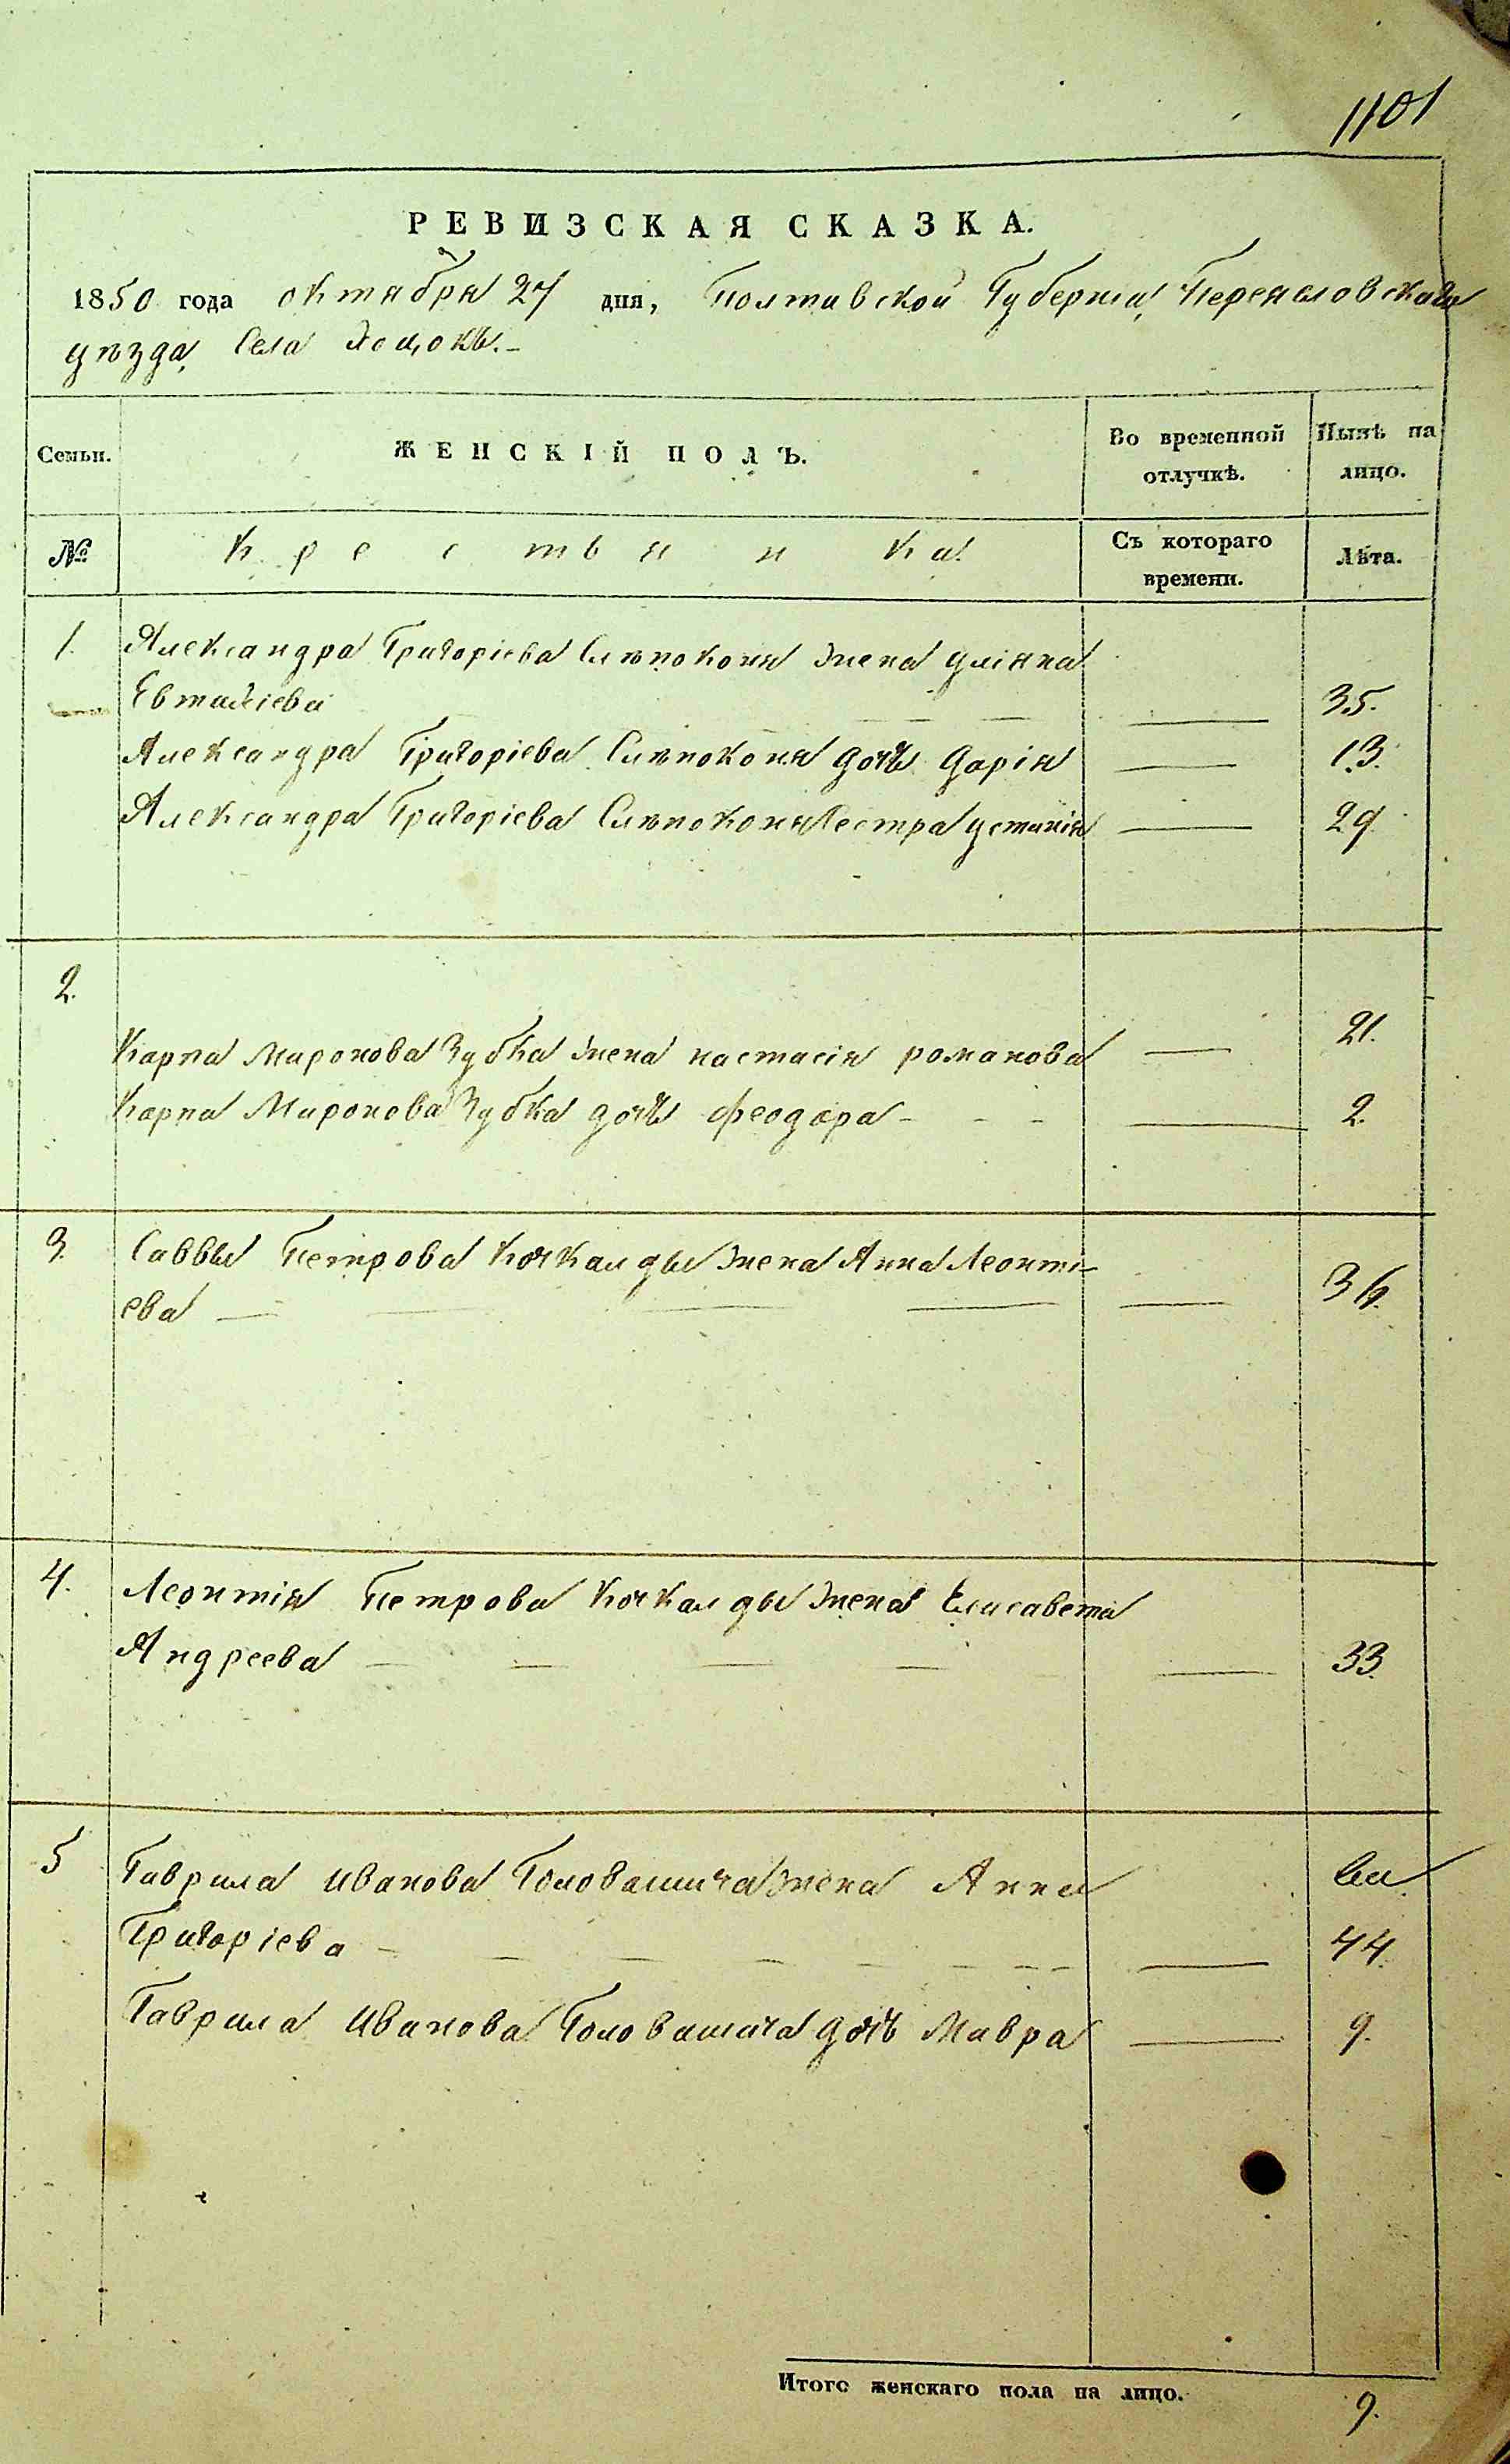 1101
РЕВИЗСКАЯ СКАЗКА.
1850 года октября 27 дня, Полтавской Губерніи, Переяславскаго
уѣзда, Села Хоцокъ.-
Семьи. ЖЕНСКІЙ ПОЛЪ. Во временной отлучкѣ. Нынѣ на лицо.
№ Крестьянки Съ котораго времени. Лѣта.
1. Александра Григоріева Слѣпоконя жена Уліяна
Евтихіева 35.
Александра Григоріева Слѣпоконя дочь Дарія 13.
Александра Григоріева Слѣпоконя Сестра Устинія 29.
2.
Карпа Миронова Зубка жена настасія романова 21.
Карпа Миронова Зубка дочь феодора - - - 2.
3. Саввы Петрова Кочкалды жена Анна Леонті-
ева 36.
4. Леонтія Петрова Кочкалды жена Елисавета
Андреева 33.
5 Гаврила Иванова Головашича жена Анна
Григоріева 44.
Гаврила Иванова Головашича дочь Мавра 9.
Итого женскаго пола на лицо. 9.